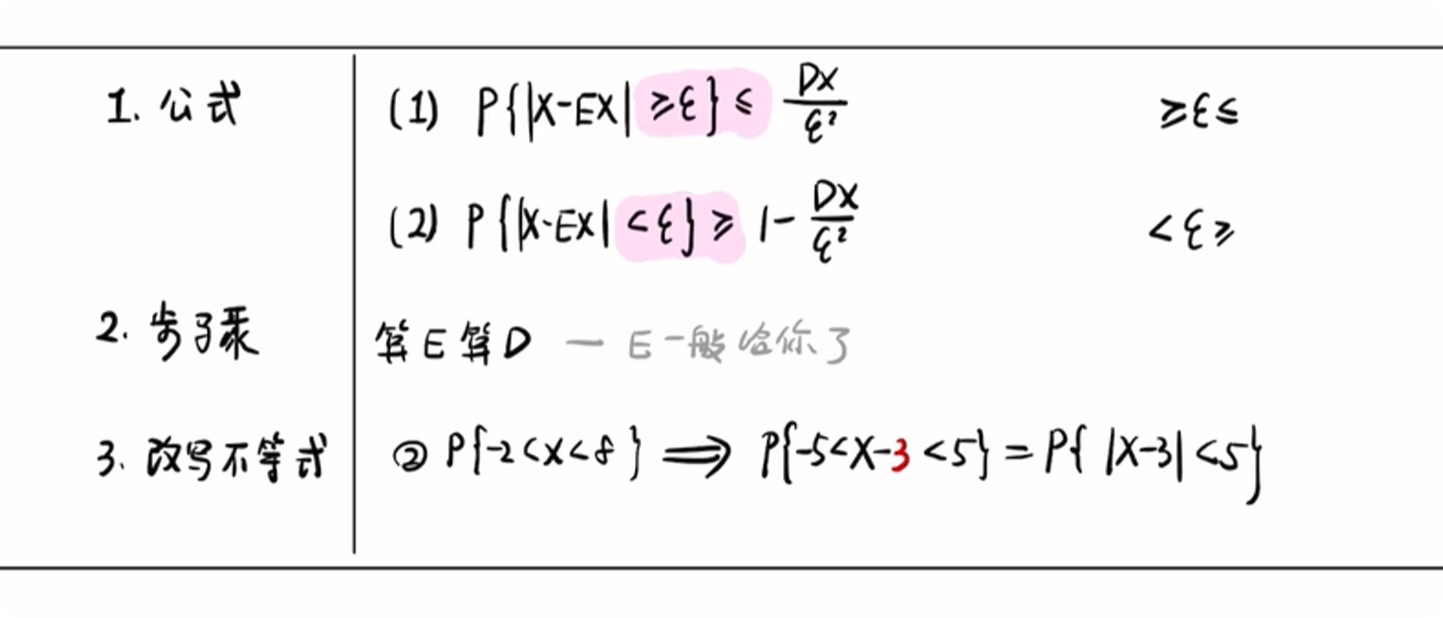 1. 公式 (1) P{|X-EX|≥ε}≤ DX/ε² ≥ε≤
(2) P{|X-EX|<ε}≥ 1- DX/ε² <ε≥
2. 步骤 算E算D — E一般给你了
3. 改写不等式 ② P{-2<X<8} ⟹ P{-5<X-3<5} = P{ |X-3|<5}